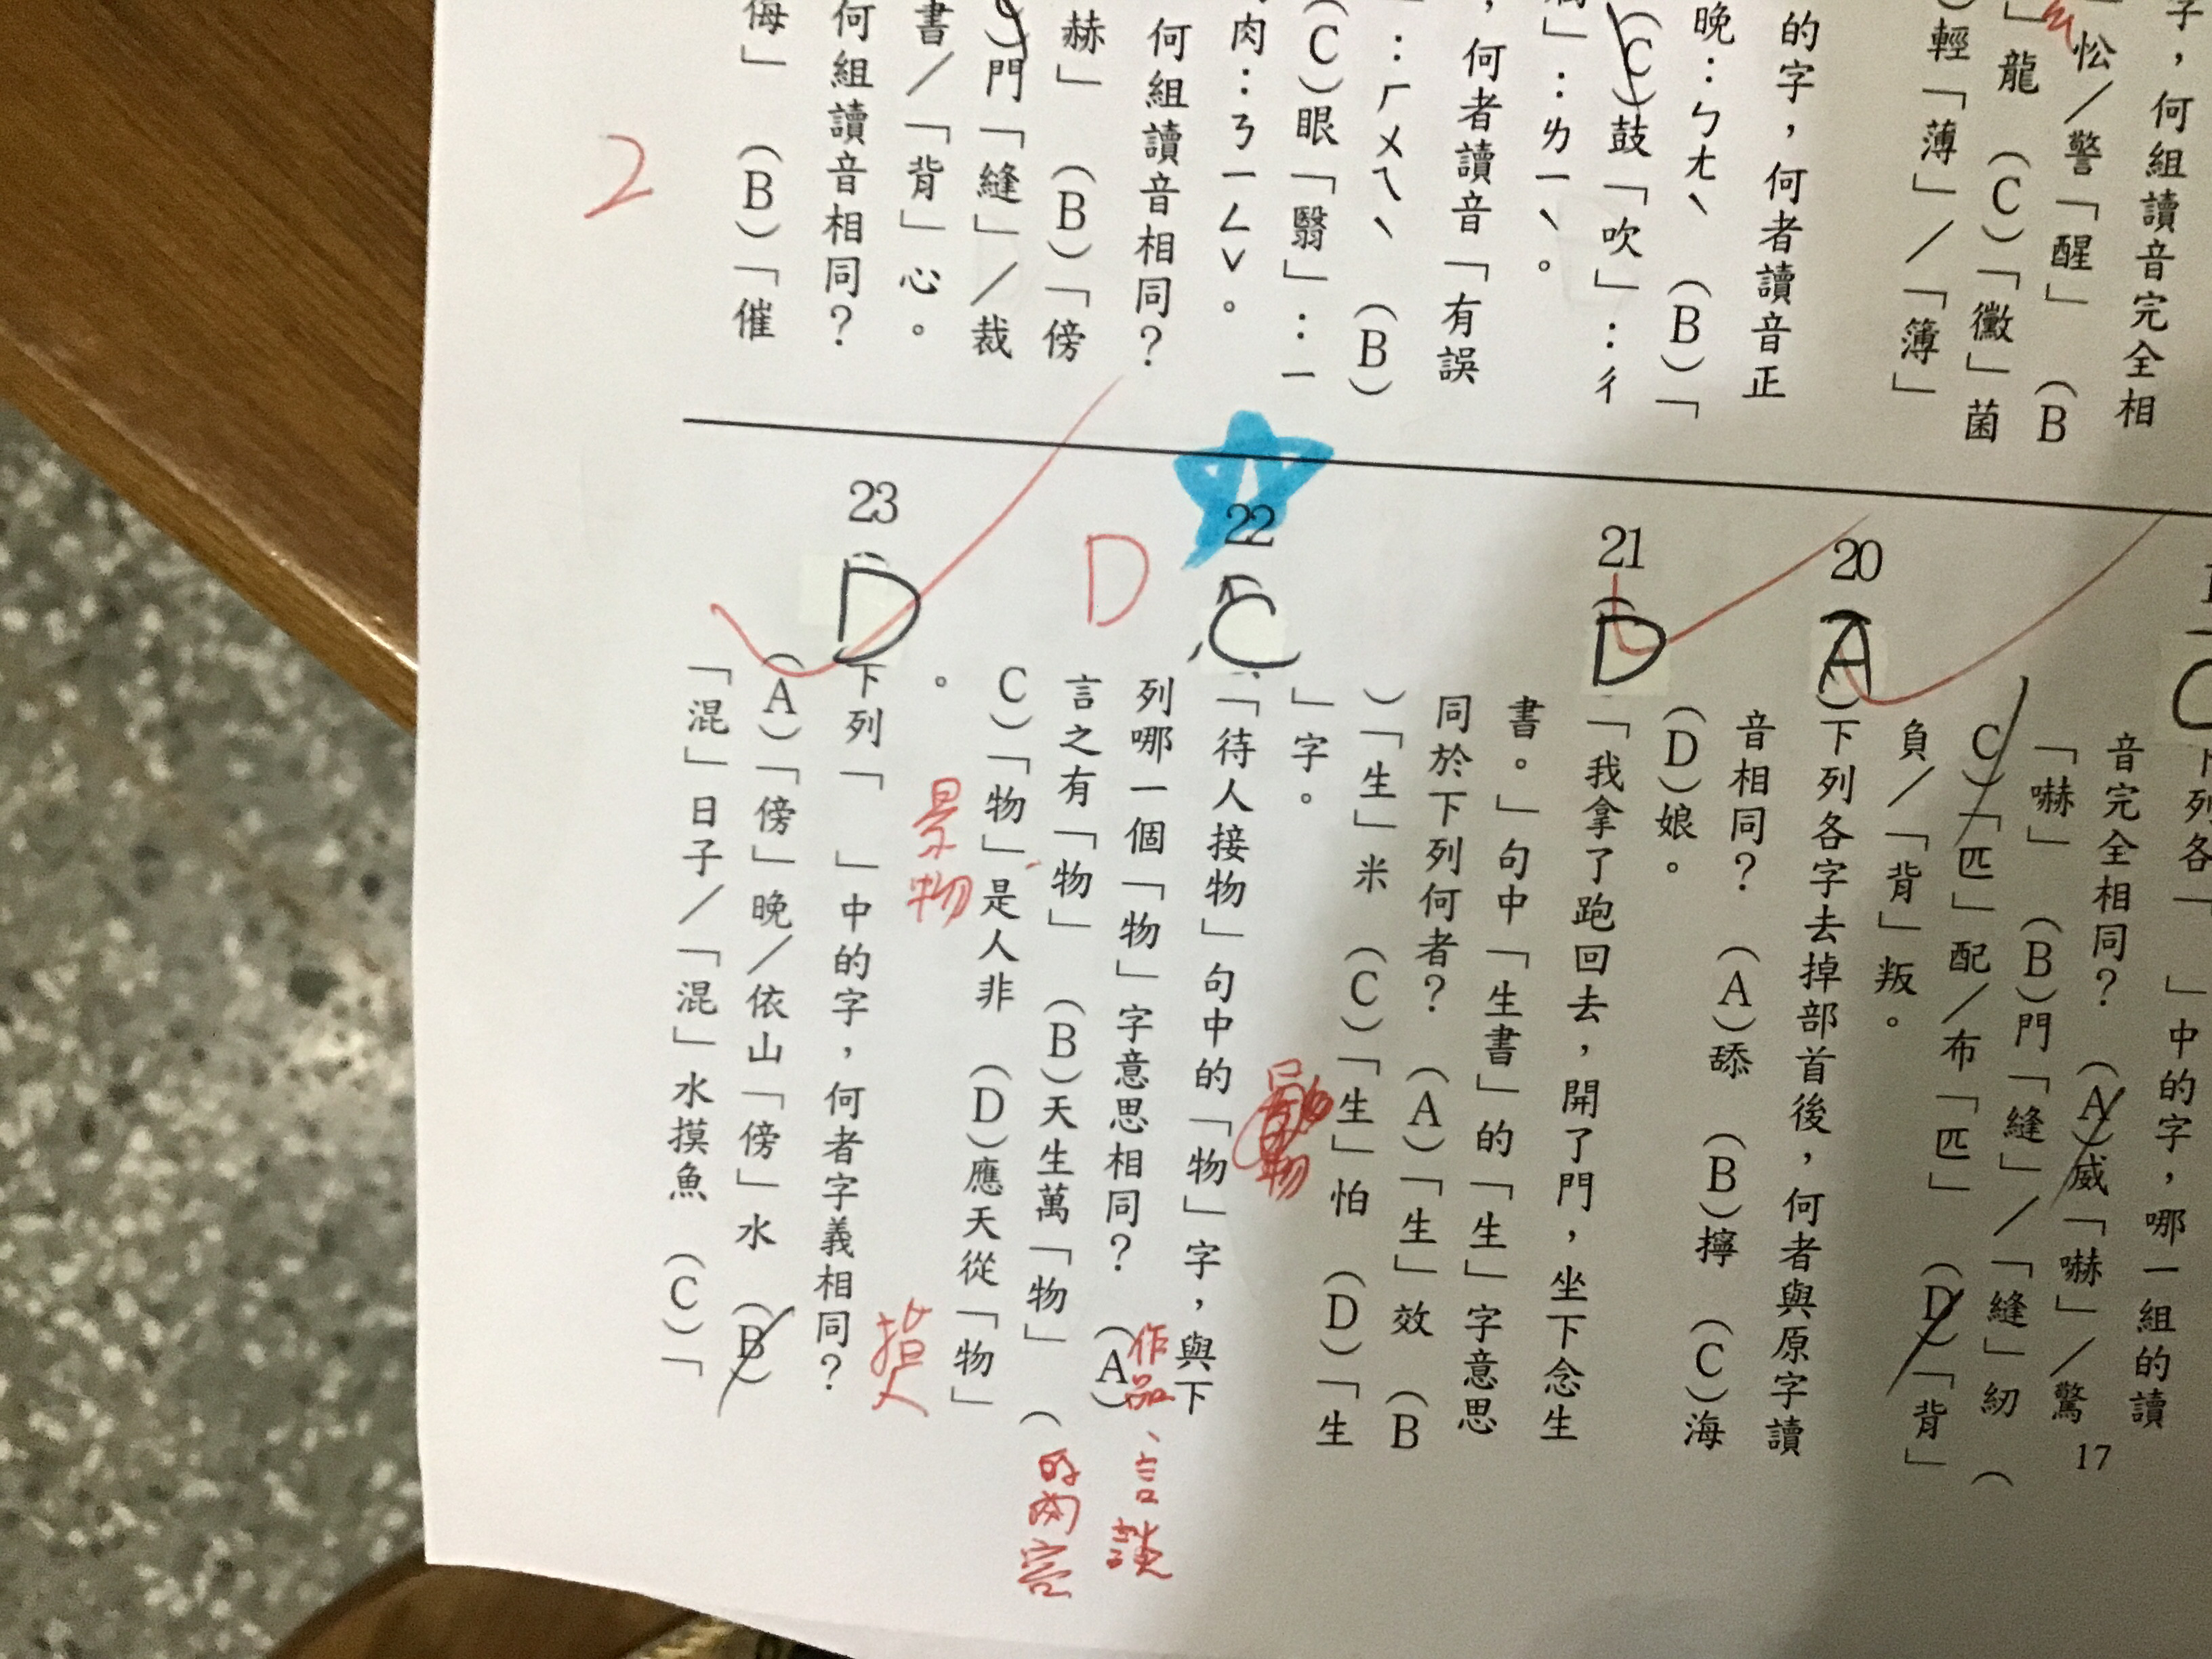 子，何組讀音完全相
忪／警「醒」 (B
」龍 (C)「黴」菌
)輕「薄」／「簿」
的字，何者讀音正
晚：ㄅㄤˋ (B)「
(C)鼓「吹」：ㄔ
」：ㄌㄧˋ。
，何者讀音「有誤
」：ㄏㄨㄟˋ (B)
(C)眼「翳」：ㄧ
肉：ㄋㄧㄥˇ。
何組讀音相同？
赫」 (B)「傍
)門「縫」／裁
書／「背」心。
何組讀音相同？
侮」 (B)「催
2
下列各「 」中的字，哪一組的讀
音完全相同？ (A)威「嚇」／驚
「嚇」 (B)門「縫」／「縫」紉 (
C)「匹」配／布「匹」 (D)「背」
負／「背」叛。
20
A
)下列各字去掉部首後，何者與原字讀
音相同？ (A)舔 (B)擰 (C)海
(D)娘。
21
D
「我拿了跑回去，開了門，坐下念生
書。」句中「生書」的「生」字意思
同於下列何者？ (A)「生」效 (B
)「生」米 (C)「生」怕 (D)「生
」字。
22
C
D
「待人接物」句中的「物」字，與下
列哪一個「物」字意思相同？ (A)
言之有「物」 (B)天生萬「物」 (
C)「物」是人非 (D)應天從「物」
。
作品、言談
的內容
景物
指人
23
D
下列「 」中的字，何者字義相同？
(A)「傍」晚／依山「傍」水 (B)
「混」日子／「混」水摸魚 (C)「
17